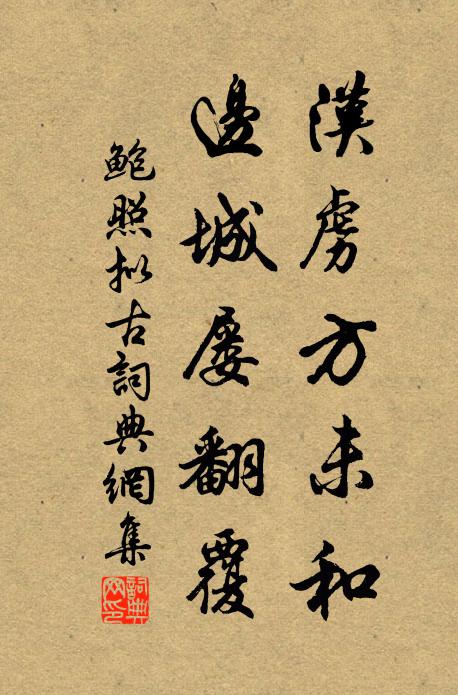 漢虜方未和
邊城屢翻覆
鮑照拟古詞典網集
詞典
网印